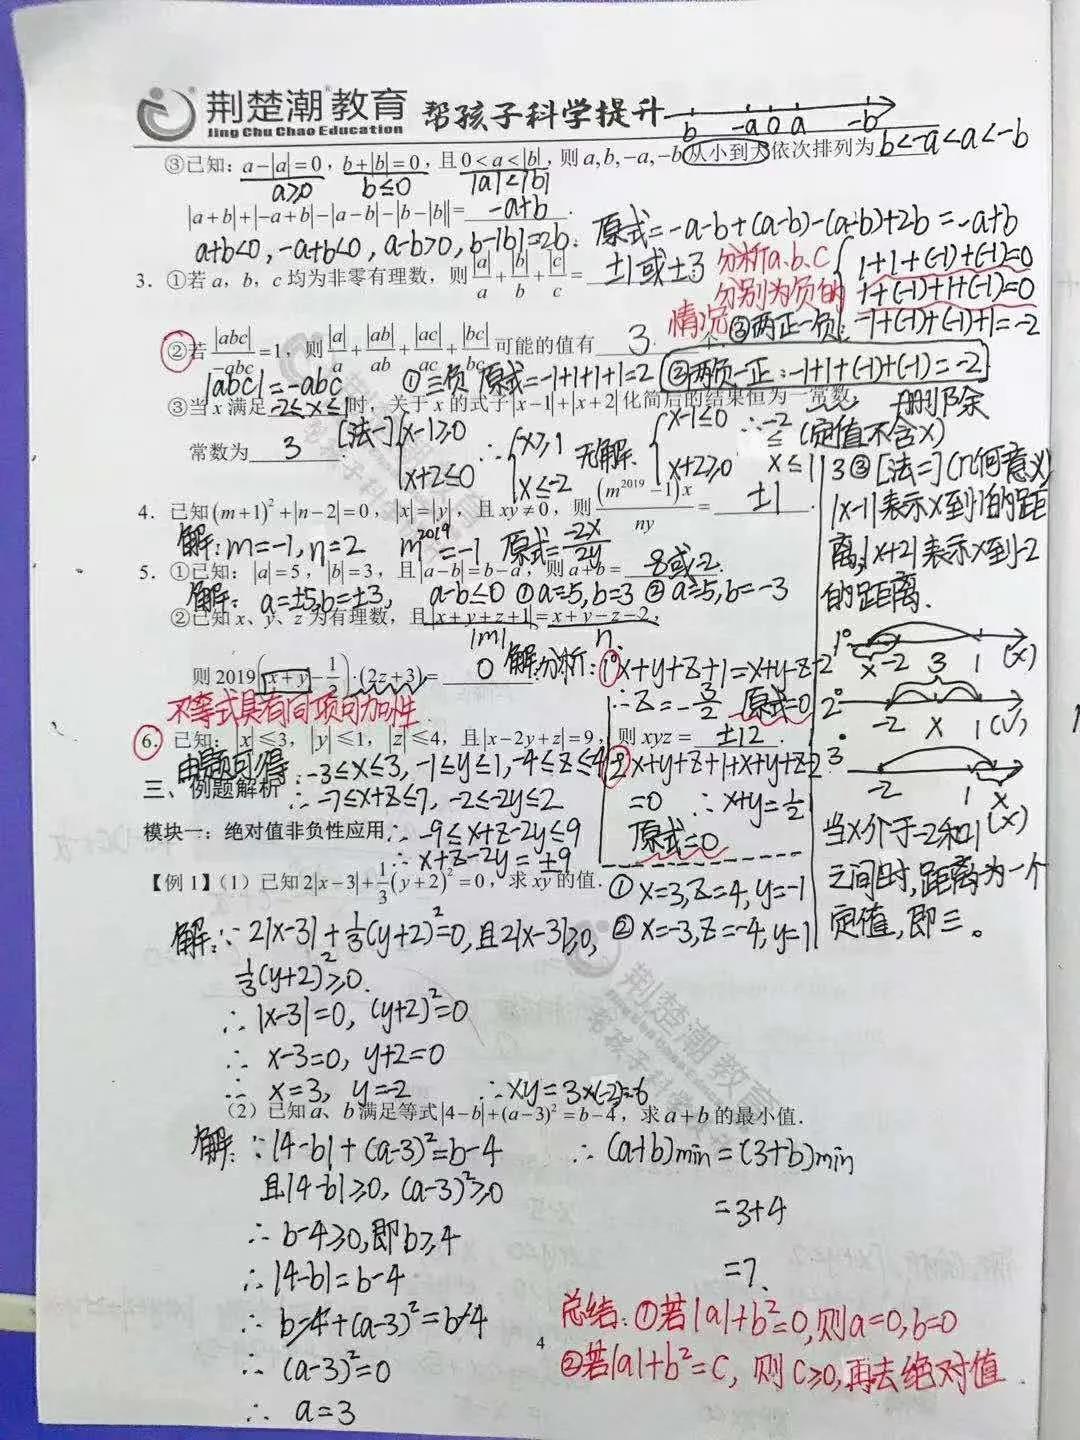 荆楚潮教育 帮孩子科学提升
Jing Chu Chao Education
b -a 0 a -b
③已知：a-|a|=0，b+|b|=0，且0<a<|b|，则a,b,-a,-b从小到大依次排列为 b<-a<a<-b
a≥0 b≤0 |a|<|b|
|a+b|+|-a+b|-|a-b|-|b-|b||= -a+b .
a+b<0, -a+b<0, a-b>0, b-|b|=2b, 原式=-a-b+(a-b)-(a-b)+2b=-a+b
3．①若a，b，c均为非零有理数，则|a|/a+|b|/b+|c|/c= ±1或±3
分析a、b、c
分别为负的
情况
1+1+(-1)+(-1)=0
1+(-1)+1+(-1)=0
③两正一负：-1+(-1)+(-1)+1=-2
②若|abc|/-abc=1，则|a|/a+|ab|/ab+|ac|/ac+|bc|/bc可能的值有 3 个
|abc|=-abc ①三负 原式=-1+1+1+1=2 ②两负一正：-1+1+(-1)+(-1)=-2
删除
③当x满足-2≤x≤1时，关于x的式子|x-1|+|x+2|化简后的结果恒为一常数，
常数为 3 .
[法一] {x-1≥0 x+2≤0 ∴{x≥1 x≤-2 无解. {x-1≤0 x+2≥0 ∴-2≤x≤1
(定值不含x)
3③[法二](几何意义)
|x-1|表示x到1的距
离，|x+2|表示x到-2
的距离.
1° x -2 3 1 (x)
2° -2 x 1 (x)
3° -2 1 x (x)
当x介于-2和1
之间时，距离为一个
定值，即三。
4．已知(m+1)²+|n-2|=0，|x|=|y|，且xy≠0，则(m²⁰¹⁹-1)x/ny= ±1 .
解：m=-1, n=2 m²⁰¹⁹=-1 原式=-2x/2y
5．①已知：|a|=5，|b|=3，且|a-b|=b-a，则a+b= -8或-2.
解：a=±5,b=±3, a-b≤0 ①a=-5,b=3 ②a=-5,b=-3
②已知x、y、z为有理数，且|x+y+z+1|=x+y-z-2，
|m| n
则2019(x+y-1/2)·(2z+3)= 0 .
解：分析：1°x+y+z+1=x+y-z-2
∴z=-3/2 原式=0
2°x+y+z+1+x+y-z-2
=0 ∴x+y=1/2
原式=0
不等式具有同项可加性
6．已知：|x|≤3，|y|≤1，|z|≤4，且|x-2y+z|=9，则xyz= ±12 .
由题可得：-3≤x≤3, -1≤y≤1, -4≤z≤4
∴-7≤x+z≤7, -2≤-2y≤2
∴-9≤x+z-2y≤9
∴x+z-2y=±9
①x=3,z=4,y=-1
②x=-3,z=-4,y=1
三、例题解析
模块一：绝对值非负性应用
【例1】（1）已知2|x-3|+1/3(y+2)²=0，求xy的值．
解：∵2|x-3|+1/3(y+2)²=0, 且2|x-3|≥0,
1/3(y+2)²≥0.
∴|x-3|=0, (y+2)²=0
∴x-3=0, y+2=0
∴x=3, y=-2 ∴xy=3×(-2)=-6
（2）已知a、b满足等式|4-b|+(a-3)²=b-4，求a+b的最小值．
解：∵|4-b|+(a-3)²=b-4
且|4-b|≥0, (a-3)²≥0
∴b-4≥0,即b≥4
∴|4-b|=b-4
∴b-4+(a-3)²=b-4
∴(a-3)²=0
∴a=3
∴(a+b)min=(3+b)min
=3+4
=7.
总结：①若|a|+b²=0,则a=0,b=0
②若|a|+b²=c, 则c≥0,再去绝对值.
4